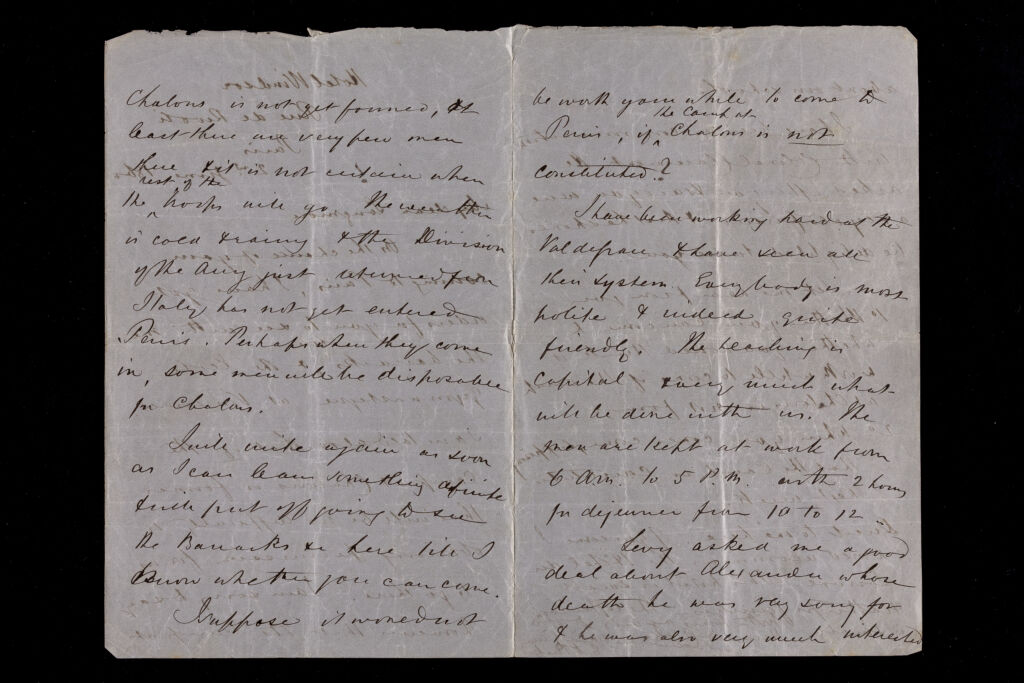 Chalons is not yet formed, at
least there are very few men
there & it is not certain when
the ^rest of the troops will go. The weather
is cold & rainy & the Division
of the Army just returned from
Italy has not yet entered
Paris. Perhaps when they come
in, some men will be disposable
for Chalons.
I will write again as soon
as I can learn something definite
& will put off going to see
the Barracks &c here till I
know whether you can come.
I suppose it would not
be worth your while to come to
Paris, if ^the camp at Chalons is not
constituted?
I have been working hard at the
Val de Grace & have seen all
their system. Everybody is most
polite & indeed quite
friendly. The teaching is
capital & very much what
will be done with us. The
men are kept at work from
6 A.m. to 5 P.M. with 2 hours
for dejeuner from 10 to 12
Levy asked me a good
deal about Alexander whose
death he was very sorry for
& he was also very much interested
Hotel Windsor
Rue de Rivoli
Paris